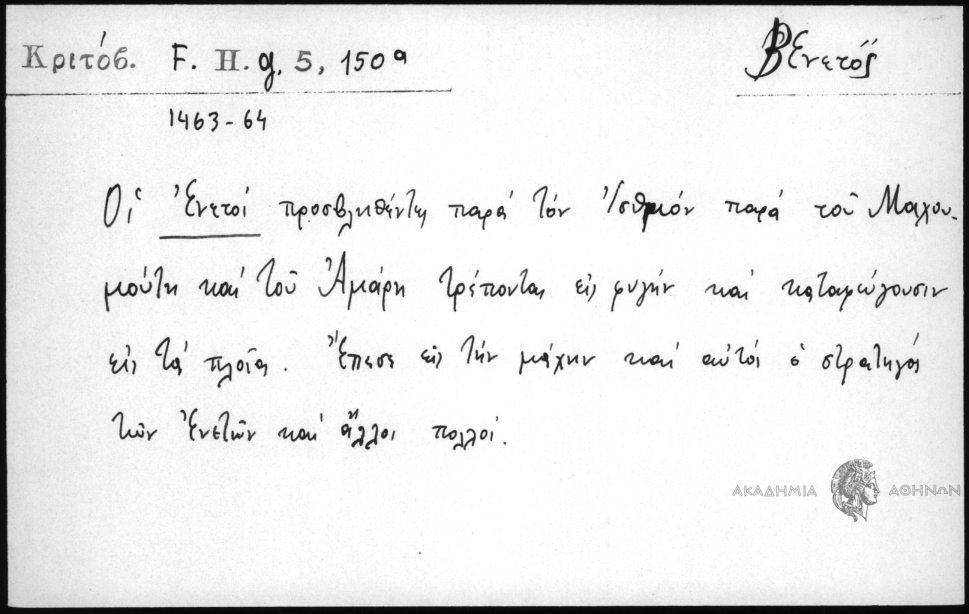 Κριτόβ. F. H. g. 5, 150ª
Βενετός
1463-64
Οἱ Ἐνετοί προσβληθέντες παρά τόν Ἰσθμόν παρά τοῦ Μαχου-
μούτη καί τοῦ Ἀμάρη τρέπονται εἰς φυγήν καί καταφεύγουσιν
εἰς τά πλοῖα. Ἔπεσε εἰς τήν μάχην καί αὐτός ὁ στρατηγός
τῶν Ἐνετῶν καί ἄλλοι πολλοί.
ΑΚΑΔΗΜΙΑ ΑΘΗΝΩΝ